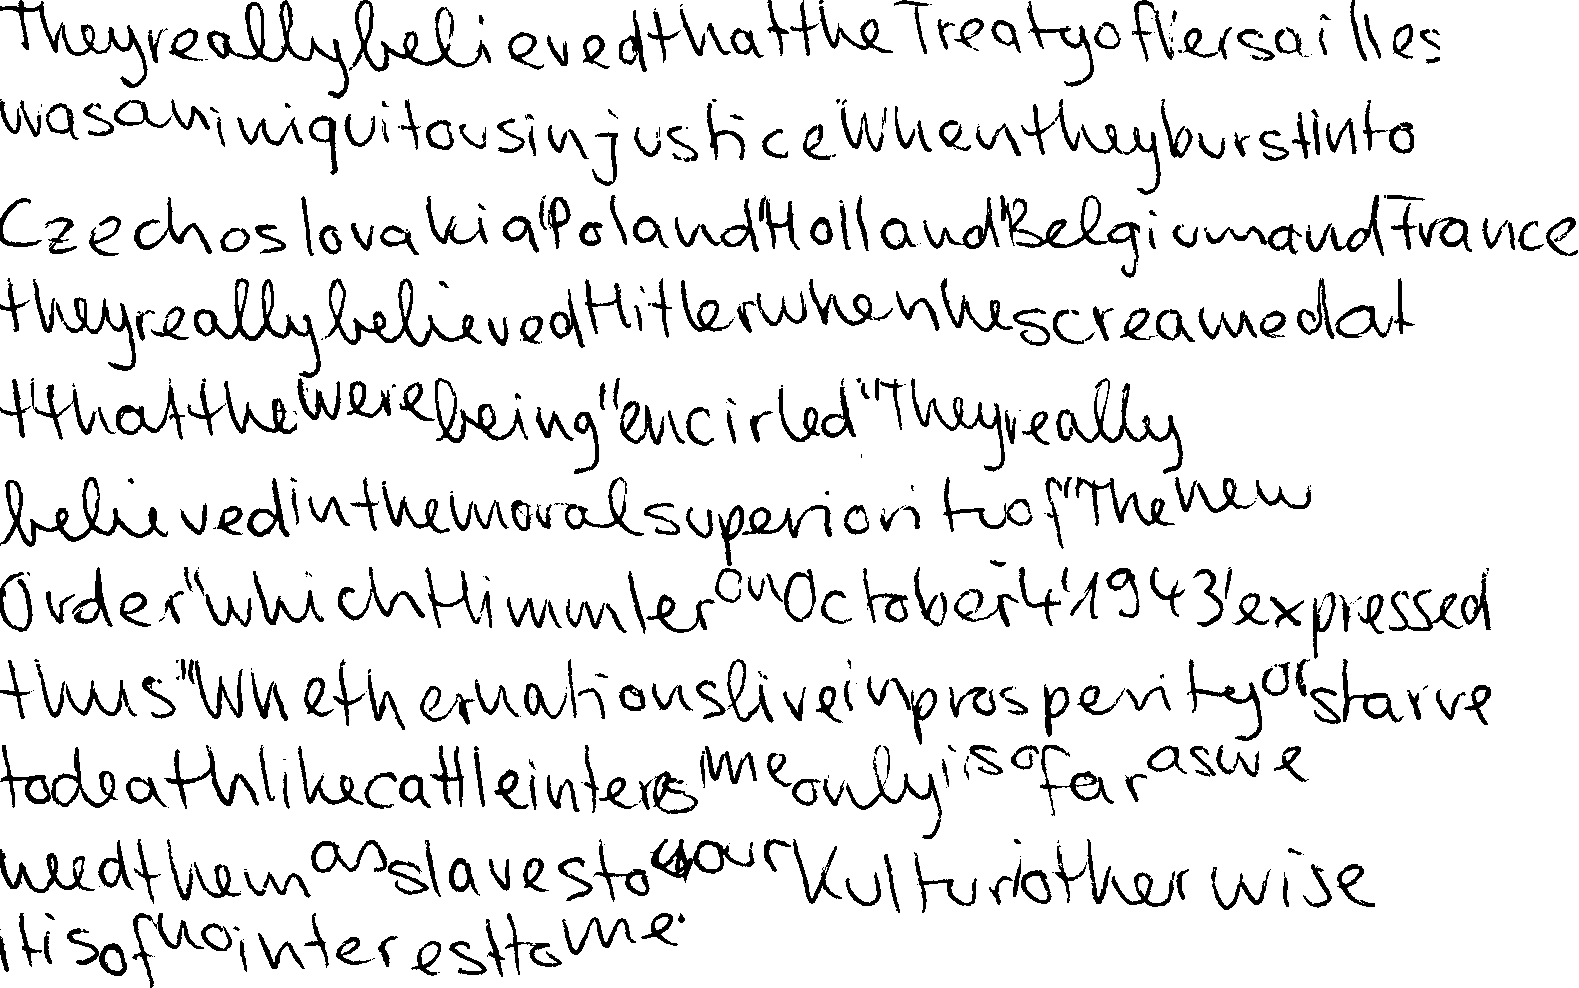 They really believed that the Treaty of Versailles
was an iniquitous injustice "When they burst into
Czechoslovakia "Poland "Holland "Belgium and France
they really believed Hitler when he screamed at
t that the were being "encirled" "They really
believed in the moral superiority of "The new
Order" which Himmler on October 4 ' 1943 ' expressed
thus "Whether nations live in prosperity or starve
to death like cattle interes me only i iso far as we
need them as slaves to our Kultur i otherwise
it is of no interest to me.